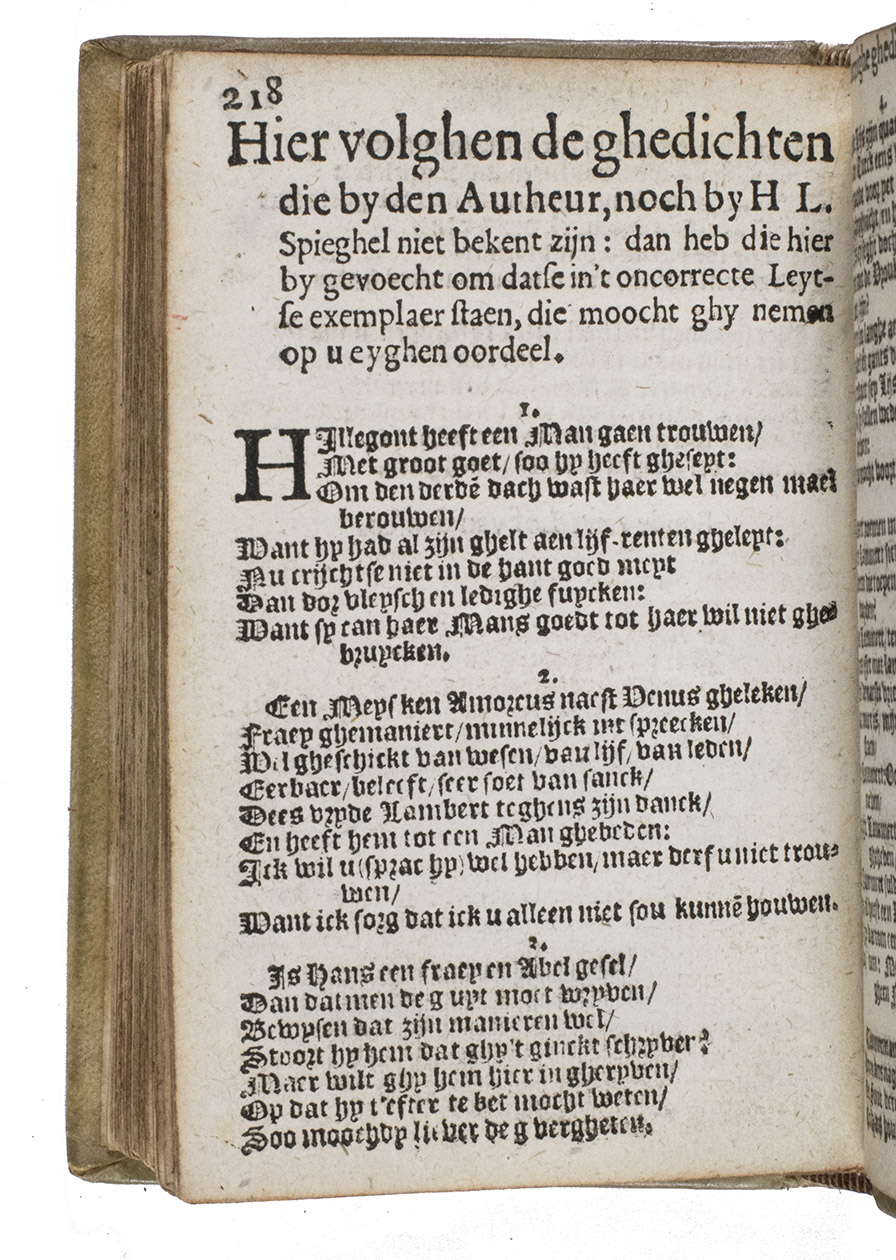 218
Hier volghen de ghedichten
die by den Autheur, noch by H L.
Spieghel niet bekent zijn : dan heb die hier
by gevoecht om datſe in't oncorrecte Leyt-
ſe exemplaer ſtaen, die moocht ghy nemen
op u eyghen oordeel.
1.
HIllegont heeft een Man gaen trouwen/
Met groot goet/ ſoo hy heeft gheſeyt:
Om den derdē dach waſt haer wel negen mael
berouwen/
Want hy had al zijn ghelt aen lijf-renten gheleyt:
Nu crijchtſe niet in de hant goed meyt
Dan dor vleyſch en ledighe fuycken:
Want ſy can haer Mans goedt tot haer wil niet ghe-
bruycken.
2.
Een Meyſken Amoreus naeſt Venus gheleken/
Fraey ghemaniert/ minnelijck int ſpreecken/
Wel gheſchickt van weſen/ van lijf/ van leden/
Eerbaer/ beleeft/ ſeer ſoet van ſanck/
Dees vryde Lambert teghens zijn danck/
En heeft hem tot een Man ghebeden:
Ick wil u (ſprac hy) wel hebben/ maer derf u niet trou-
wen/
Want ick ſorg dat ick u alleen niet ſou kunnē houwen.
3.
Is Hans een fraey en Abel geſel/
Dan datmen de g uyt moet wryven/
Bewyſen dat zijn manieren wel/
Stoort hy hem dat ghy't ginckt ſchryven?
Maer wilt ghy hem hier in gheryven/
Op dat hy t'efter te bet mocht weten/
Soo moochdy liever de g vergheten.